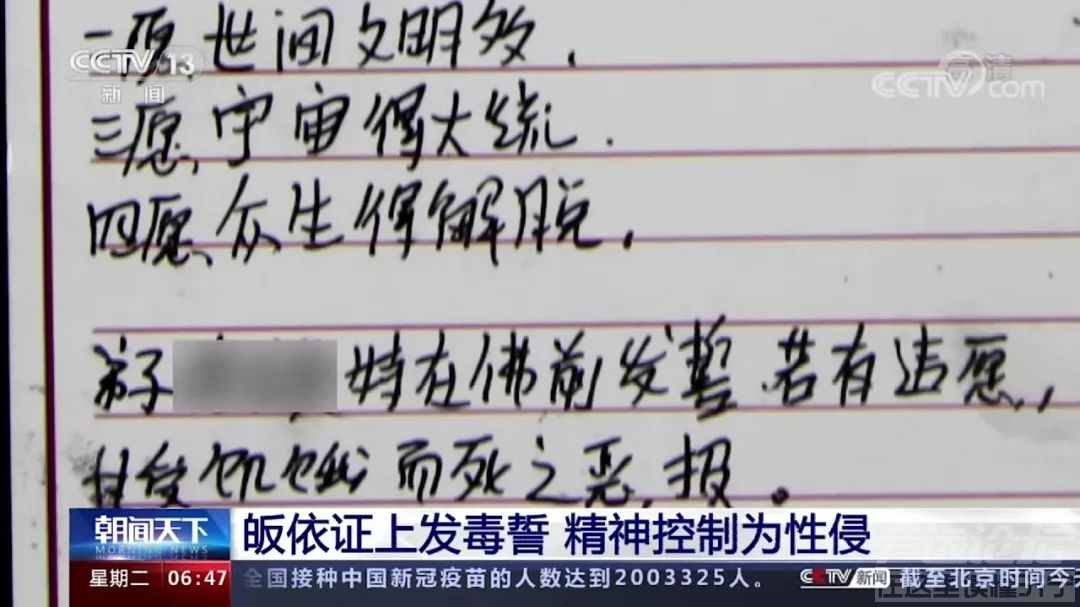 CCTV 13
新闻
CCTV.com
高清
愿,世间文明
三愿,宇宙得大统.
四愿,众生得解脱.
弟子 特在佛前发誓.若有违愿,
甘受饥饿而死之恶报。
朝闻天下
MORNING NEWS
皈依证上发毒誓 精神控制为性侵
星期二 06:47
全国接种中国新冠疫苗的人数达到2003325人。 CCTV 新闻 截至北京时间今